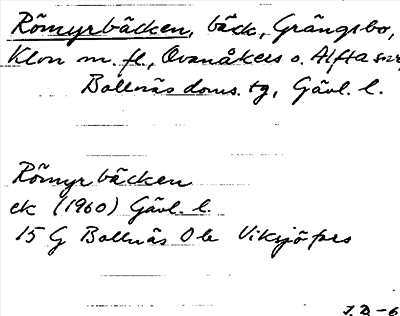 Römyrbäcken, bäck, Grängsbo,
Klon m. fl., Ovanåkers o. Alfta snr,
Bollnäs doms. tg, Gävl. l.
Römyrbäcken
ek (1960) Gävl. l.
15 G Bollnäs 0 b Viksjöfors